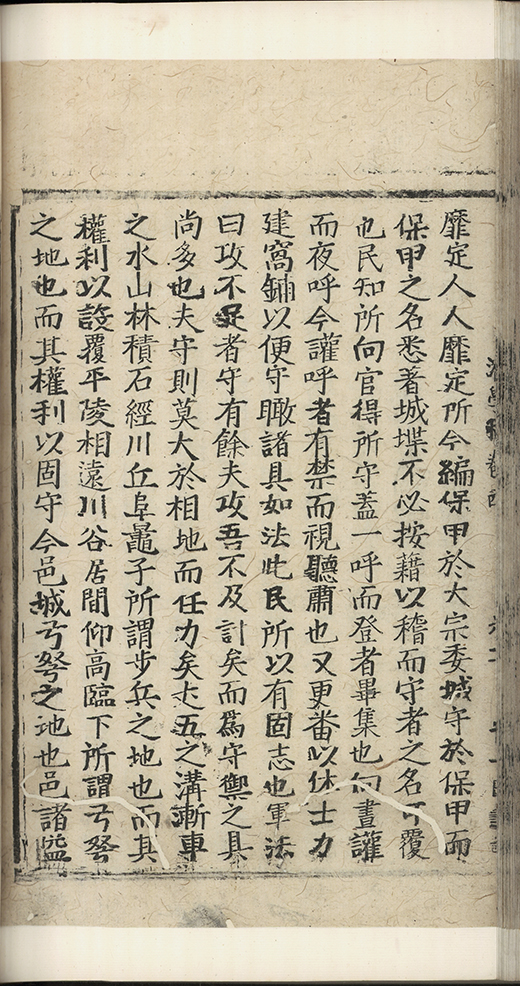 靡定人人靡定所今編保甲於大宗委城守於保甲而
保甲之名悉著城堞不必按藉以稽而守者之名可覆
也民知所向官得所守蓋一呼而登者畢集也向晝讙
而夜呼今讙呼者有禁而視聽肅也又更畨以休士力
建窩鋪以便守瞰諸具如法此民所以有固志也軍法
曰攻不足者守有餘夫攻吾不及計矣而爲守禦之具
尚多也夫守則莫大於相地而任力矣丈五之溝漸車
之水山林積石經川丘阜鼂子所謂步兵之地也而其
權利以設覆平陵相遠川谷居間仰高臨下所謂弓弩
之地也而其權利以固守今邑城弓弩之地也邑諸盜